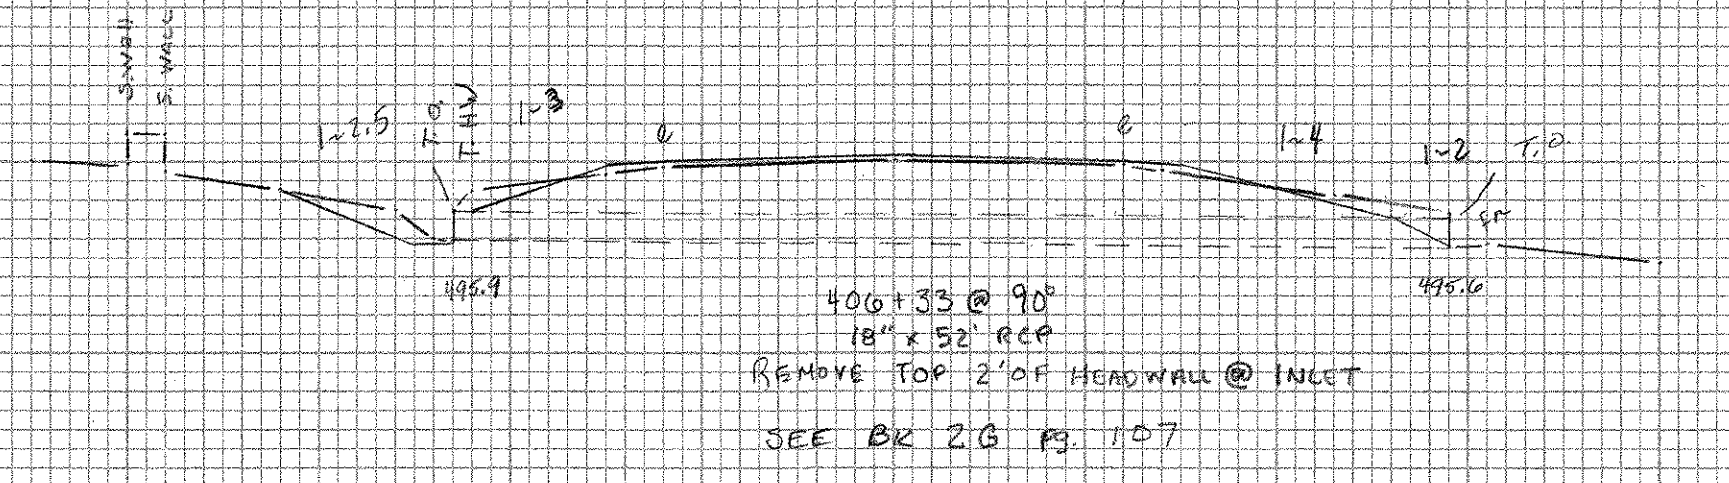 S. WALL
S. WALL
1~2.5
T.O.
1~3
e
e
1~4
1~2
T.O.
495.9
495.6
406+33 @ 90°
18" x 52' RCP
REMOVE TOP 2' OF HEADWALL @ INLET
SEE BK 2G pg. 107